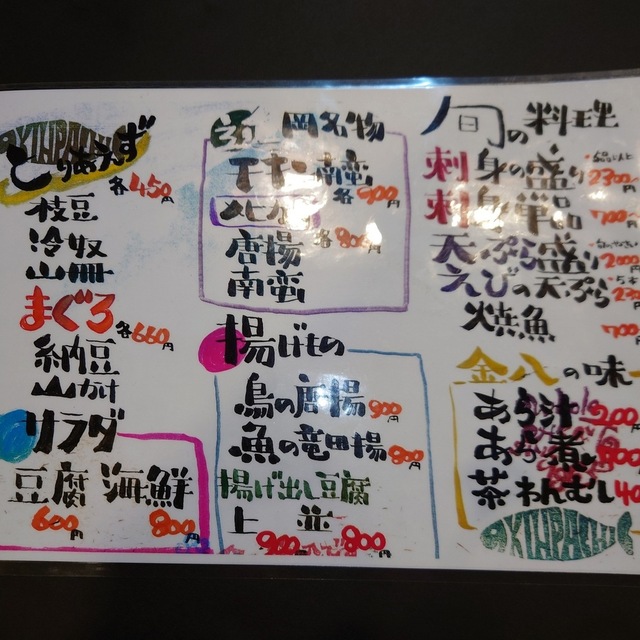 とりあえず
各450円
枝豆
冷奴
まぐろ
各660円
納豆
山かけ
サラダ
豆腐 海鮮
600円 800円
岡名物
チキン南蛮
各900円
各800円
唐揚
南蛮
揚げもの
鳥の唐揚 900円
魚の竜田揚 800円
揚げ出し豆腐
上 並
900円 800円
旬の料理
刺身の盛り
2300円
刺身単品 700円
天ぷら盛り 2000
えびの天ぷら
焼魚 700円
金八の味
あら汁 200円
あら煮 800円
茶わんむし 40
KINPACHI